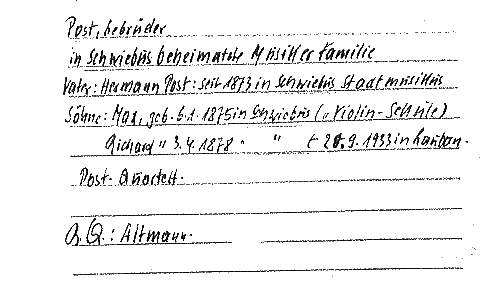 Post, Gebrüder
in Schwiebus beheimatete Musiker Familie
Vater: Hermann Post: seit 1873 in Schwiebus Stadtmusikus
Söhne: Max, geb. 6.1.1875 in Schwiebus („Violin-Schule)
Richard " 3.4.1878 " " † 20.9.1933 in Lauban.
Post-Quartett.
a. Q.: Altmann.